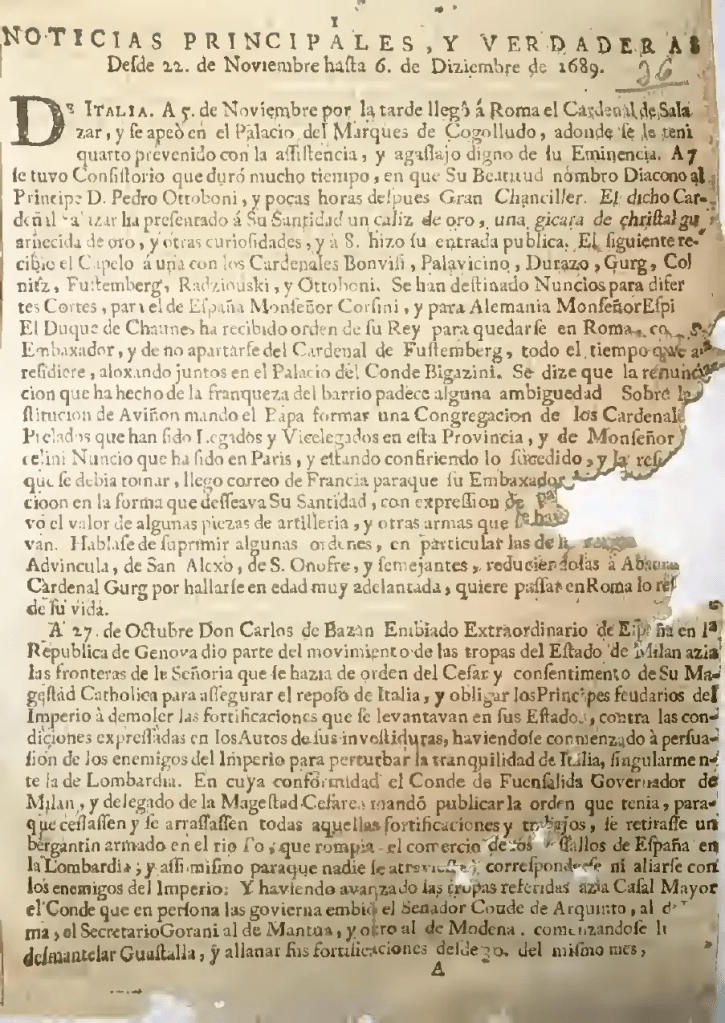 1
NOTICIAS PRINCIPALES, Y VERDADERAS
Desde 22. de Noviembre hasta 6. de Diziembre de 1689.
36
DE ITALIA. A 5. de Noviembre por la tarde llegó á Roma el Cardenal de Sala
zar, y se apeò en el Palacio del Marques de Cogolludo, adonde se le teni
quarto prevenido con la assistencia, y agasajo digno de su Eminencia. A 7
se tuvo Consistorio que duró mucho tiempo, en que Su Beatitud nombro Diacono al
Principe D. Pedro Ottoboni, y pocas horas despues Gran Chanciller. El dicho Car-
denal Salazar ha presentado á Su Santidad un caliz de oro, una gicara de christal gu
arnecida de oro, y otras curiosidades, y à 8. hizo su entrada publica. El siguiente re-
cibio el Capelo á una con los Cardenales Bonvisi, Palavicino, Durazo, Gurg, Col
nitz, Fustemberg, Radziouski, y Ottoboni. Se han destinado Nuncios para difer
tes Cortes, para el de España Monseñor Corsini, y para Alemania Monseñor Espi
El Duque de Chaunes ha recibido orden de su Rey para quedarse en Roma
Embaxador, y de no apartarse del Cardenal de Fustemberg, todo el tiempo que
residiere, aloxando juntos en el Palacio del Conde Bigazini. Se dize que la renuncia
cion que ha hecho de la franqueza del barrio padece alguna ambiguedad Sobre la
stitucion de Aviñon mando el Papa formar una Congregacion de los Cardenale
Prelados que han sido Legados y Vicelegados en esta Provincia, y de Monseñor
celini Nuncio que ha sido en Paris, y estando confiriendo lo sucedido, y la res
que se debia tomar, llego correo de Francia paraque su Embaxador
cioon en la forma que desseava Su Santidad, con expression de
vo el valor de algunas piezas de artilleria, y otras armas que se
van. Hablase de suprimir algunas ordenes, en particular las de
Advincula, de San Alexo, de S. Onofre, y semejantes, reduciendolas à
Cardenal Gurg por hallarse en edad muy adelantada, quiere passar en Roma lo res
de su vida.
A 27. de Octubre Don Carlos de Bazàn Embiado Extraordinario de España en la
Republica de Genova dio parte del movimiento de las tropas del Estado de Milan azia
las fronteras de le Señoria que se hazia de orden del Cesar y consentimento de Su Ma-
gestad Catholica para assegurar el reposo de Italia, y obligar los Principes feudarios del
Imperio à demoler las fortificaciones que se levantavan en sus Estados, contra las con-
diciones expressadas en los Autos de sus investiduras, haviendose conmenzado à persua-
sion de los enemigos del Imperio para perturbar la tranquilidad de Italia, singularmen-
te la de Lombardia. En cuya conformidad el Conde de Fuensalida Governador de
Milan, y delegado de la Magestad Cesarea mandó publicar la orden que tenia, para-
que cessassen y se arrassassen todas aquellas fortificaciones y trabajos, se retirasse un
bergantin armado en el rio Po, que rompia el comercio de los Vassallos de España en
la Lombardia; y assimismo paraque nadie se atreviesse corresponderse ni aliarse con
los enemigos del Imperio: Y haviendo avanzado las tropas referidas azia Casal Mayor
el Conde que en persona las govierna embió el Senador Conde de Arquinto, al
ma, el Secretario Gorani al de Mantua, y otro al de Modena. comenzandose
desmantelar Guastalla, y allanar sus fortificaciones desde 30. del mismo mes,
A